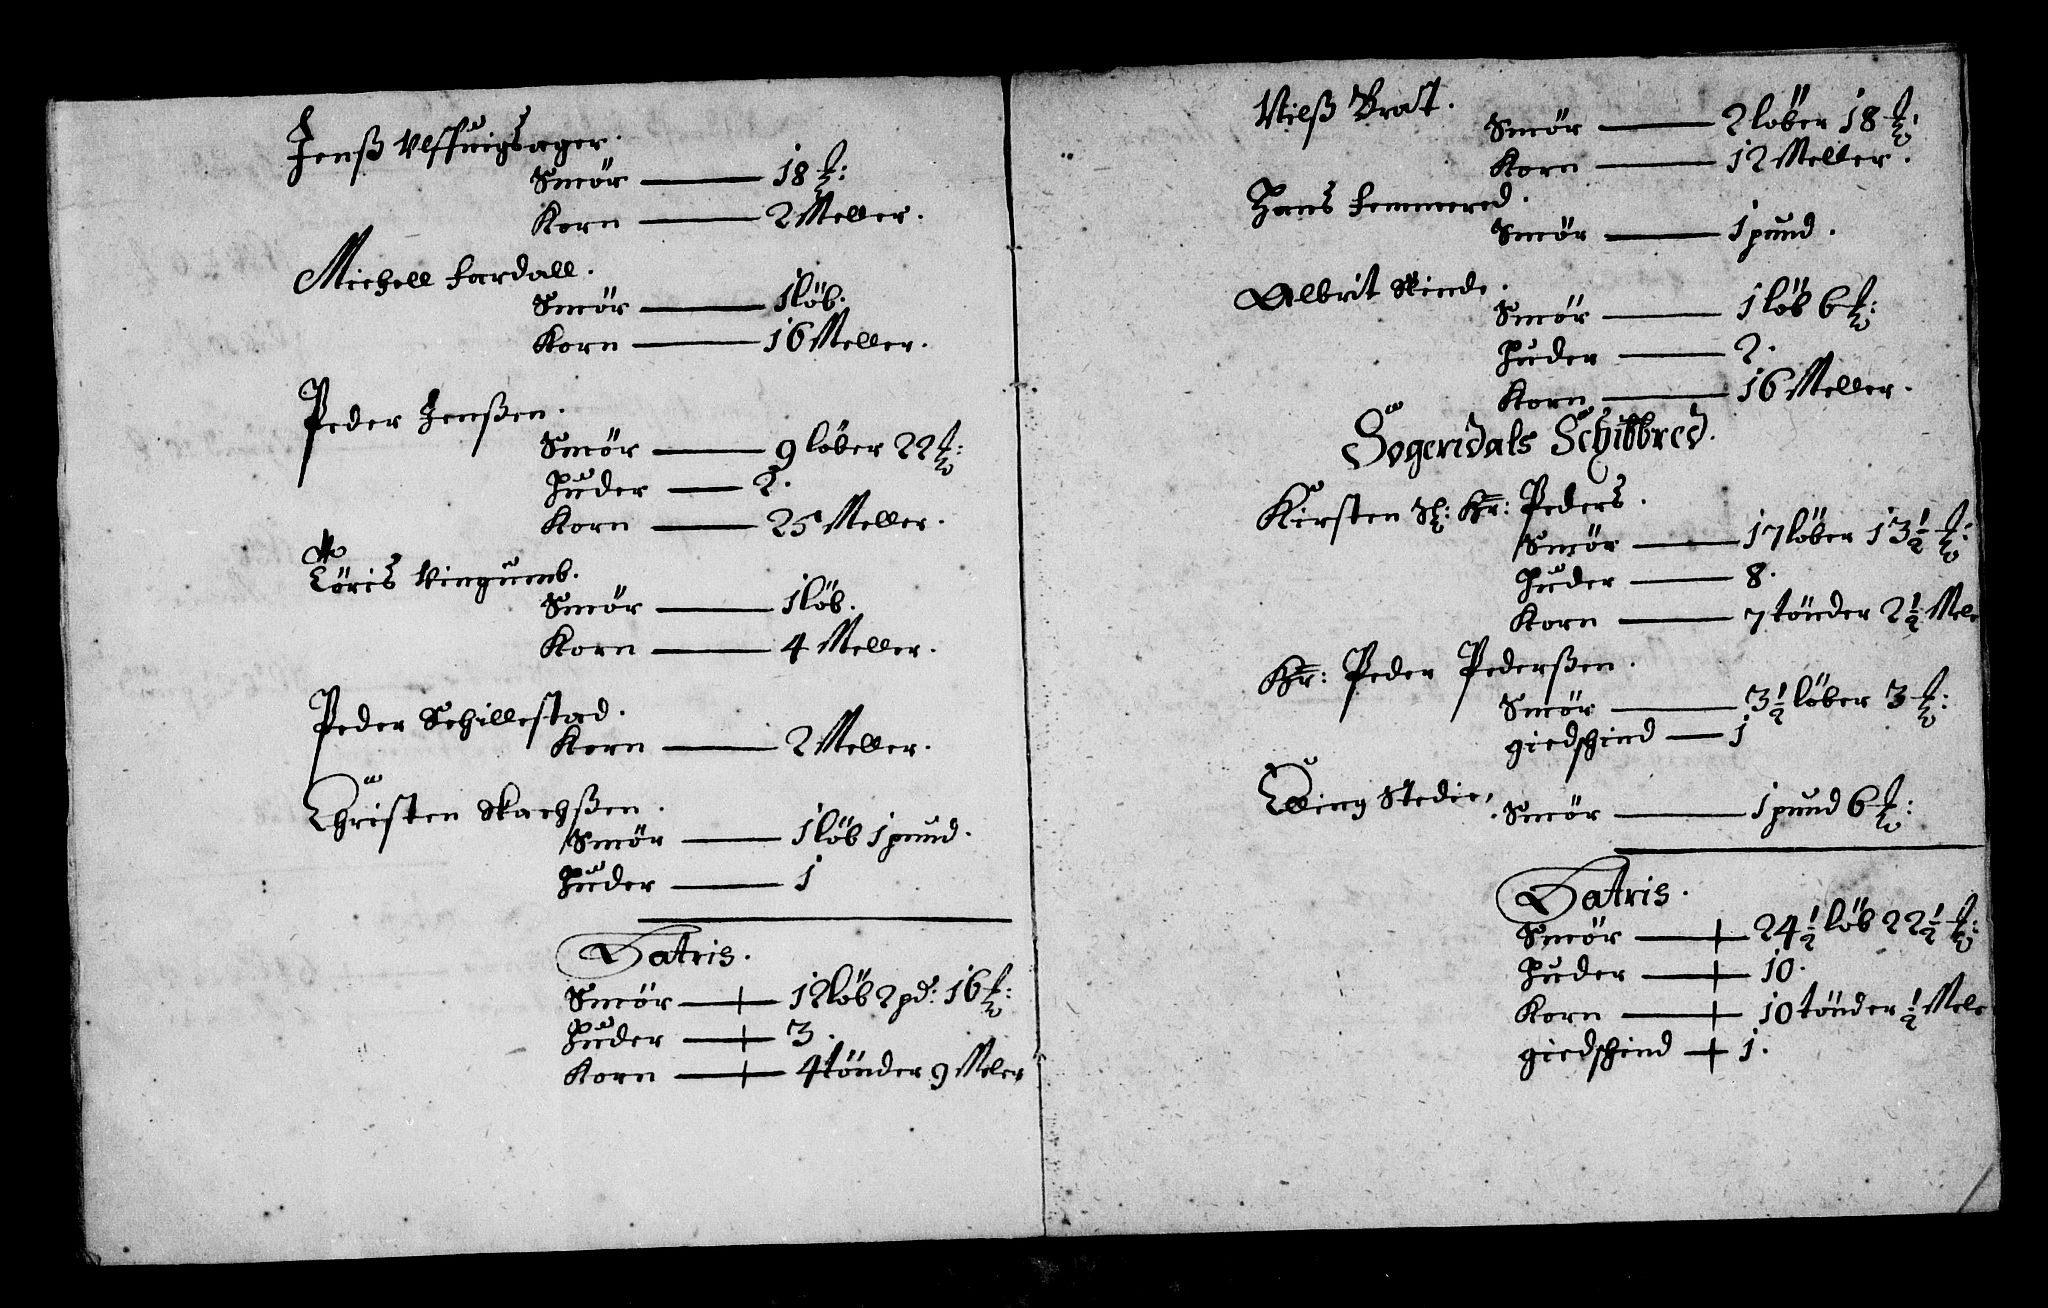 Jenß Ulfsuigsager.
Smör — 18 ℔:
Korn — 2 Meller.
Michell Lardall.
Smör — 1 löb.
Korn — 16 Meller.
Peder Jenßen.
Smör — 9 löber 22 ℔:
Huder — 2.
Korn — 25 Meller.
Töris Vingumb.
Smör — 1 löb.
Korn — 4 Meller.
Peder Schillestad.
Korn — 2 Meller.
Christen Skachßen.
Smör — 1 löb 1 pund.
Huder — 1
Lateris.
Smör — 12 löb 2 pd: 16 ℔:
Huder — 3.
Korn — 4 tönder 9 Meler
Nilß Brat.
Smör — 2 löber 18 ℔.
Korn — 12 Meller.
Hans Lemmered.
Smör — 1 pund.
Albrit Skinde.
Smör — 1 löb 6 ℔:
Huder — 2.
Korn — 16 Meller.
Sogeridals Schibbred.
Kirsten Sl: Hr: Peders.
Smör — 17 löber 13½ ℔:
Huder — 8.
Korn — 7 tönder 2½ Mele
Hr: Peder Pederßen.
Smör — 3½ löber 3 ℔:
giedschind — 1
Elling Stedie,
Smör — 1 pund 6 ℔:
Lateris.
Smör — 24½ löb 22½ ℔:
Huder — 10.
Korn — 10 tönder ½ Mele
giedschind — 1.